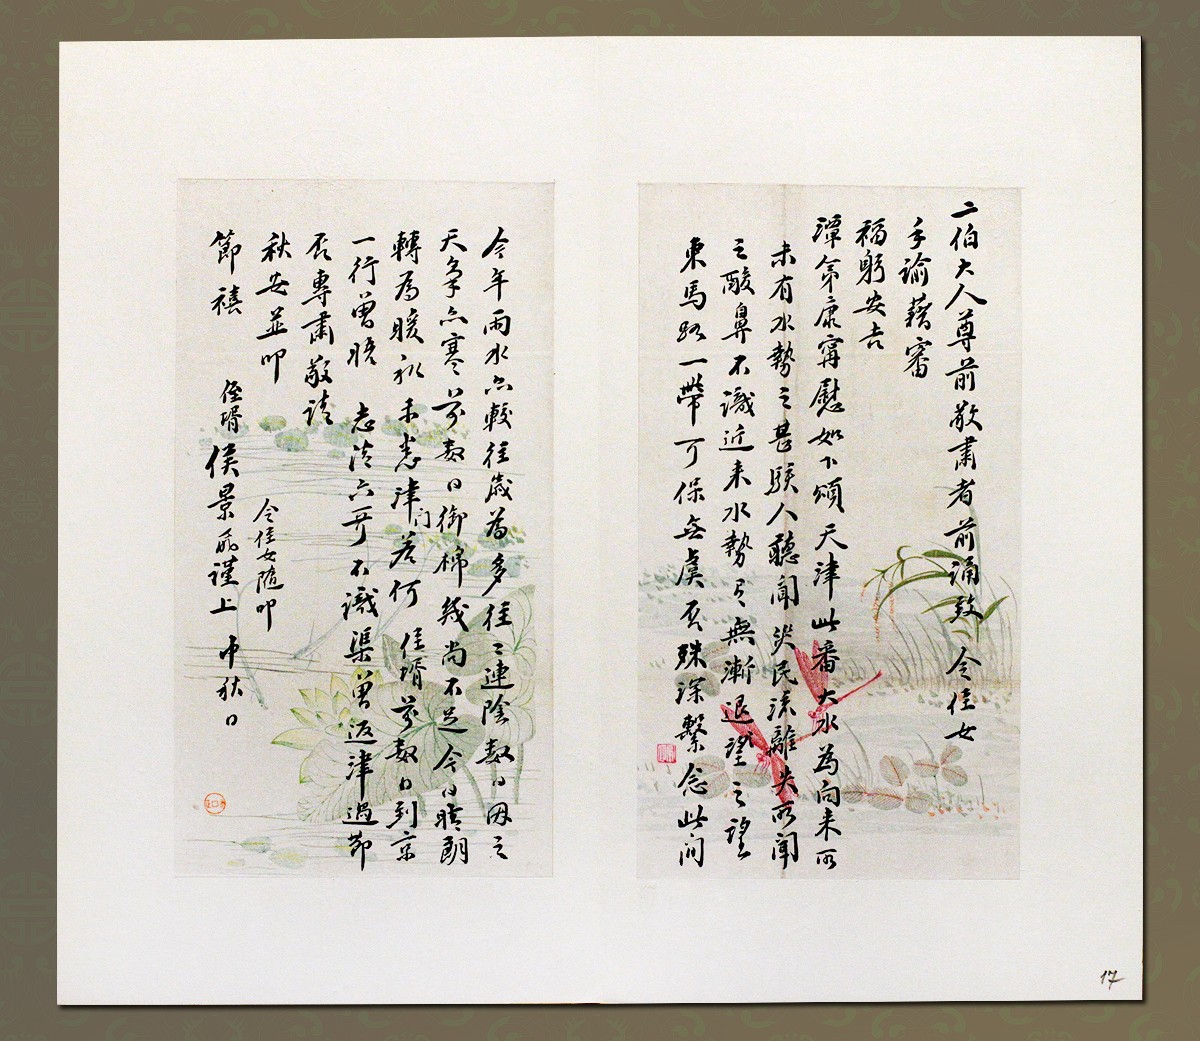 二伯大人尊前敬肅者前誦致 令侄女
手諭藉審
福躬安吉
潭第康甯慰如下頌天津此番大水為向來所
未有水勢之甚駭人聽聞災民流離失所聞
之酸鼻不識近來水勢已無漸退望之望
東馬路一帶可保無虞否殊深繫念此間
今年雨水亦較往歲為多往二連陰數日因之
天氣亦寒前數日御棉幾尚不足今日晴朗
轉為暖 津門若何 侄壻前數日到京
一行曾晤 志清六哥不識渠曾返津過節
否專肅敬請
秋安並叩
節禧
令侄女隨叩
侄壻侯景 謹上 中秋日
17